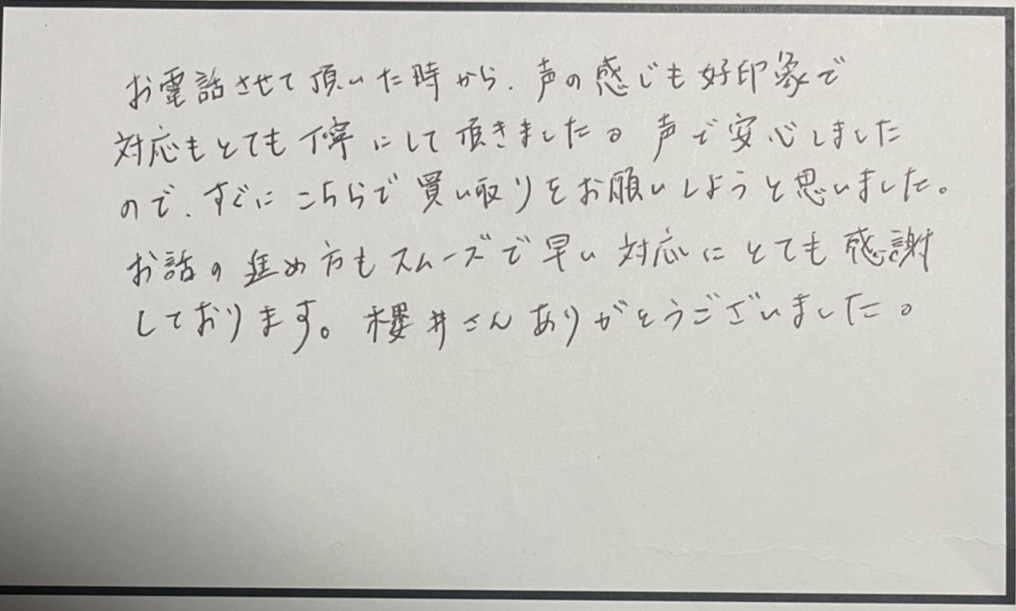 お電話させて頂いた時から、声の感じも好印象で
対応もとても丁寧にして頂きました。声で安心しました
ので、すぐにこちらで買い取りをお願いしようと思いました。
お話の進め方もスムーズで早い対応にとても感謝
しております。櫻井さんありがとうございました。